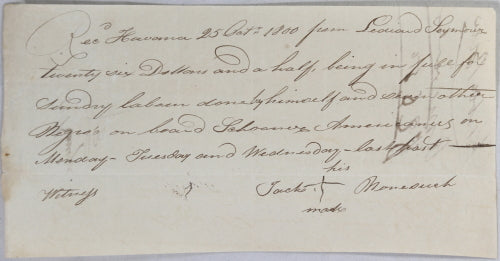 Rec.d Havana 25 Oct.r 1800 from Leonard Seymour
Twenty six Dollars and a half, being in full for
Sundry labour done by himself and other
Negro's on board Schooner Americanus on
Monday - Tuesday and Wednesday - last past
his
Witness Jack +
mark